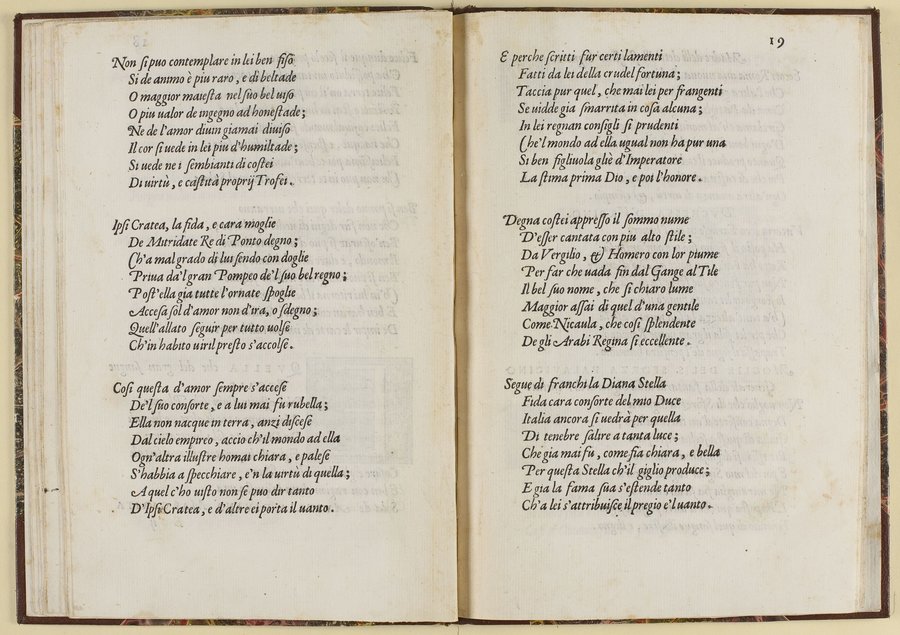 Non si puo contemplare in lei ben fiso
Si de animo è piu raro, e di beltade
O maggior maiesta nel suo bel uiso
O piu ualor de ingegno ad honestade;
Ne de l'amor diuin giamai diuiso
Il cor si uede in lei piu d'humiltade;
Si uede ne i sembianti di costei
Di uirtù, e castità proprij Trofei.
Ipsi Cratea, la fida, e cara moglie
De Mitridate Re di Ponto degno;
Ch'a mal grado di lui sendo con doglie
Priua da'l gran Pompeo de'l suo bel regno;
Post'ella gia tutte l'ornate spoglie
Accesa sol d'amor non d'ira, o sdegno;
Quell'allato seguir per tutto uolse
Ch'in habito uiril presto s'accolse.
Cosi questa d'amor sempre s'accese
De'l suo consorte, e a lui mai fu rubella;
Ella non nacque in terra, anzi discese
Dal cielo empireo, accio ch'il mondo ad ella
Ogn'altra illustre homai chiara, e palese
S'habbia a specchiare, e'n la uirtù di quella;
A quel c'ho uisto non se puo dir tanto
D'Ipsi Cratea, e d'altre ei porta il uanto.
19
E perche scritti fur certi lamenti
Fatti da lei della crudel fortuna;
Taccia pur quel, che mai lei per frangenti
Se uidde gia smarrita in cosa alcuna;
In lei regnan consigli si prudenti
Che'l mondo ad ella ugual non ha pur una
Si ben figliuola gliè d'Imperatore
La stima prima Dio, e poi l'honore.
Degna costei appresso il sommo nume
D'esser cantata con piu alto stile;
Da Vergilio, & Homero con lor piume
Per far che uada fin dal Gange al Tile
Il bel suo nome, che si chiaro lume
Maggior assai di quel d'una gentile
Come Nicaula, che cosi splendente
De gli Arabi Regina si eccellente.
Segue di franchi la Diana Stella
Fida cara consorte del mio Duce
Italia ancora si uedrà per quella
Di tenebre salire a tanta luce;
Che gia mai fu, come fia chiara, e bella
Per questa Stella ch'il giglio produce;
E gia la fama sua s'estende tanto
Ch'a lei s'attribuisce il pregio e'l uanto.